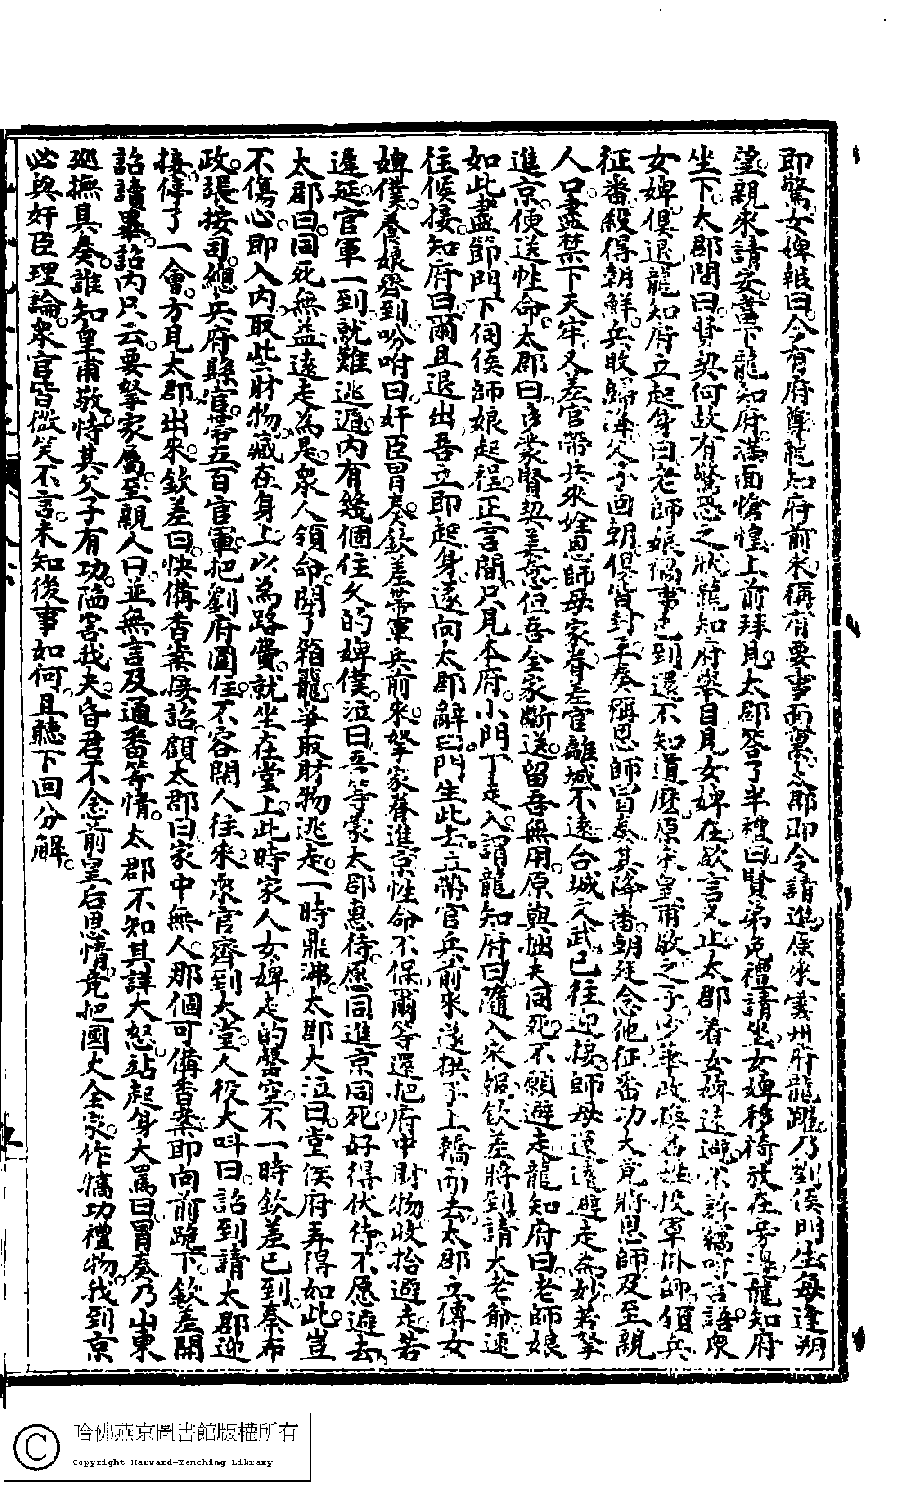 即驚女婢報曰今有府尊龍知府前來稱有要事面稟太郡即令請進原來雲州府龍躍乃劉侯門生每逢朔
望親來請安當下龍知府滿面愴惶上前拜見太郡答了半禮曰賢弟免禮請坐女婢移椅放在旁邊龍知府
坐下太郡問曰賢契何故有驚恐之狀龍知府舉目見女婢在欲言又止太郡着女婢迴避不許竊聽言語衆
女婢俱退龍知府立起身曰老師娘禍事已到還不知道麼原來皇甫敬之子少華改換名姓投軍掛帥領兵
征番殺得朝鮮兵敗歸降父子回朝俱皆封王奏稱恩師冒奏其降番朝廷念他征番功大竟將恩師及至親
人口盡禁下天牢又差官帶兵來拿恩師母家眷差官離城不遠台城文武已往迎接師母速遠避走為妙若拏
進京便送性命太郡曰既蒙賢契美意但吾全家斷送留吾無用原與拙夫同死不願避走龍知府曰老師娘
如此盡節門下伺侯師娘起程正言間只見本府小門丁走入謂龍知府曰隨入來報欽差將到請大老爺速
往候接知府曰爾且退出吾立即起身遂向太郡辭曰門生此去立帶官兵前來送拱手上轎而去太郡立傳女
婢僕養娘齊到吩咐曰奸臣冒奏欽差帶軍兵前來拏家眷進京性命不保爾等還把府中財物收拾避走若
遲延官軍一到就難逃遁內有幾個住久的婢僕泣曰吾等蒙太郡惠待應同進京同死好得伏侍不愿避去
太郡曰同死無益遠走為是衆人領命開了箱籠爭取財物逃走一時鼎沸太郡大泣曰堂堂侯府弄得如此豈
不傷心即入內取些財物藏在身上以為路費就坐在堂上此時家人女婢走的罄空不一時欽差已到奏布
政張按司總兵府縣官帶五百官軍把劉府圍住不容閑人往來衆官齊到大堂人役大叫曰詔到請太郡迎
接停了一會方見太郡出來欽差曰快備香案接詔顧太郡曰家中無人那個可備香案即向前跪下欽差開
詔讀畢詔內只云要拏家屬至親人口並無言及通番等情太郡不知其詳大怒站起身大罵曰冒奏乃山東
巡撫具奏誰知皇甫敬恃其父子有功陷害我夫昏君不念前皇后恩情竟把國丈全家作犒功禮物我到京
必與奸臣理論衆官皆微笑不言未知後事如何且聽下回分解
哈佛燕京圖書館版權所有
Copyright Harvard-Yenching Library